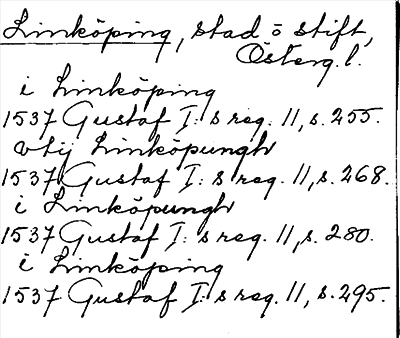 Linköping, stad o stift,
Österg. l.
i Linköping
1537 Gustaf I:s reg. 11, s. 255.
vtij Linköpungh
1537 Gustaf I:s reg. 11, s. 268.
i Linköpungh
1537 Gustaf I:s reg. 11, s. 280.
i Linköping
1537 Gustaf I:s reg. 11, s. 295.